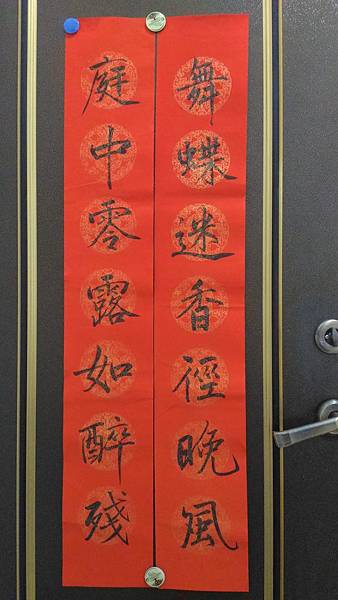 舞蝶迷香徑晚風
庭中零露如醉殘